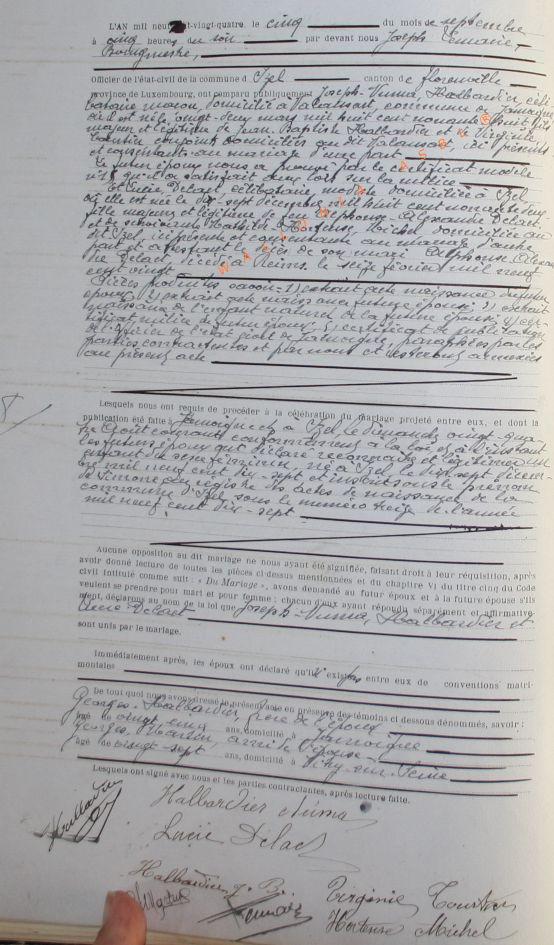 L'AN mil neuf cent-vingt-quatre, le cinq du mois de septembre
à cinq heures du soir par devant nous Joseph
Bourgmestre,
Officier de l'état-civil de la commune d' Izel canton de Florenville
province de Luxembourg, ont comparu publiquement Joseph-Numa, Halbardier, céli-
bataire maçon, domicilié à Valansart, commune de Jamoigne
où il est né le vingt-deux mars mil huit cent nonante huit fils
majeur et légitime de Jean-Baptiste Halbardier et de Virginie
conjoints domiciliés au dit Valansart, ici présents
et consentants au mariage d'une part
Le futur époux nous a prouvé par le certificat modèle
qu'il a satisfait aux lois sur la milice
Et Lucie, Delaet, célibataire, modiste domiciliée à Izel
où elle est née le dix-sept décembre mil huit cent nonante
fille majeure et légitime de feu Alphonse-Alexandre Delaet
et de survivante Hortense Michel domiciliée au
dit Izel, ici présente et consentante au mariage d'autre
part et attestant le décès de son mari Alphonse Alexan-
dre Delaet, décédé à Reims, le seize février mil neuf
cent vingt
Pièces produites savoir: 1) extrait acte naissance du futur
époux 2) extrait acte naissance future épouse 3) extrait
naissance de l'enfant naturel de la future épouse 4) cer-
tificat milice du futur époux 5) certificat de publication
de l'officier de l'état civil de Jamoigne, paraphées par les
parties contractantes et par nous et resteront annexées
au présent acte
Lesquels nous ont requis de procéder à la célébration du mariage projeté entre eux, et dont la
publication été faite à Jamoigne et à Izel le dimanche vingt-qua-
tre août courant conformément à la loi et à l'instant
les futurs époux ont déclaré reconnaître et légitimer un
enfant du sexe féminin, né à Izel le dix-sept décem-
bre mil neuf cent dix-sept et inscrit sous le prénom
de Simone au registre des actes de naissance de la
commune d'Izel sous le numéro treize de l'année
mil neuf cent dix-sept
Aucune opposition au dit mariage ne nous ayant été signifiée, faisant droit à leur réquisition, après
avoir donné lecture de toutes les pièces ci-dessus mentionnées et du chapitre VI du titre cinq du Code
civil intitulé comme suit : « Du Mariage », avons demandé au futur époux et à la future épouse s'ils
veulent se prendre pour mari et pour femme : chacun d'eux ayant répondu séparément et affirmative-
ment, déclarons au nom de la loi que Joseph-Numa, Halbardier et
Lucie Delaet
sont unis par le mariage.
Immédiatement après, les époux ont déclaré qu'il n'existe pas entre eux de conventions matri-
moniales
De tout quoi nous avons dressé le présent acte en présence des témoins ci dessous dénommés, savoir :
Georges Halbardier, frère de l'époux
âgé de vingt cinq ans, domicilié à Jamoigne
Georges ami de l'épouse
âgé de vingt-sept ans, domicilié à Vitry-sur-Seine
Lesquels ont signé avec nous et les parties contractantes, après lecture faite.
Halbardier Numa
Lucie Delaet
Halbardier J. B.
Virginie
Hortense Michel